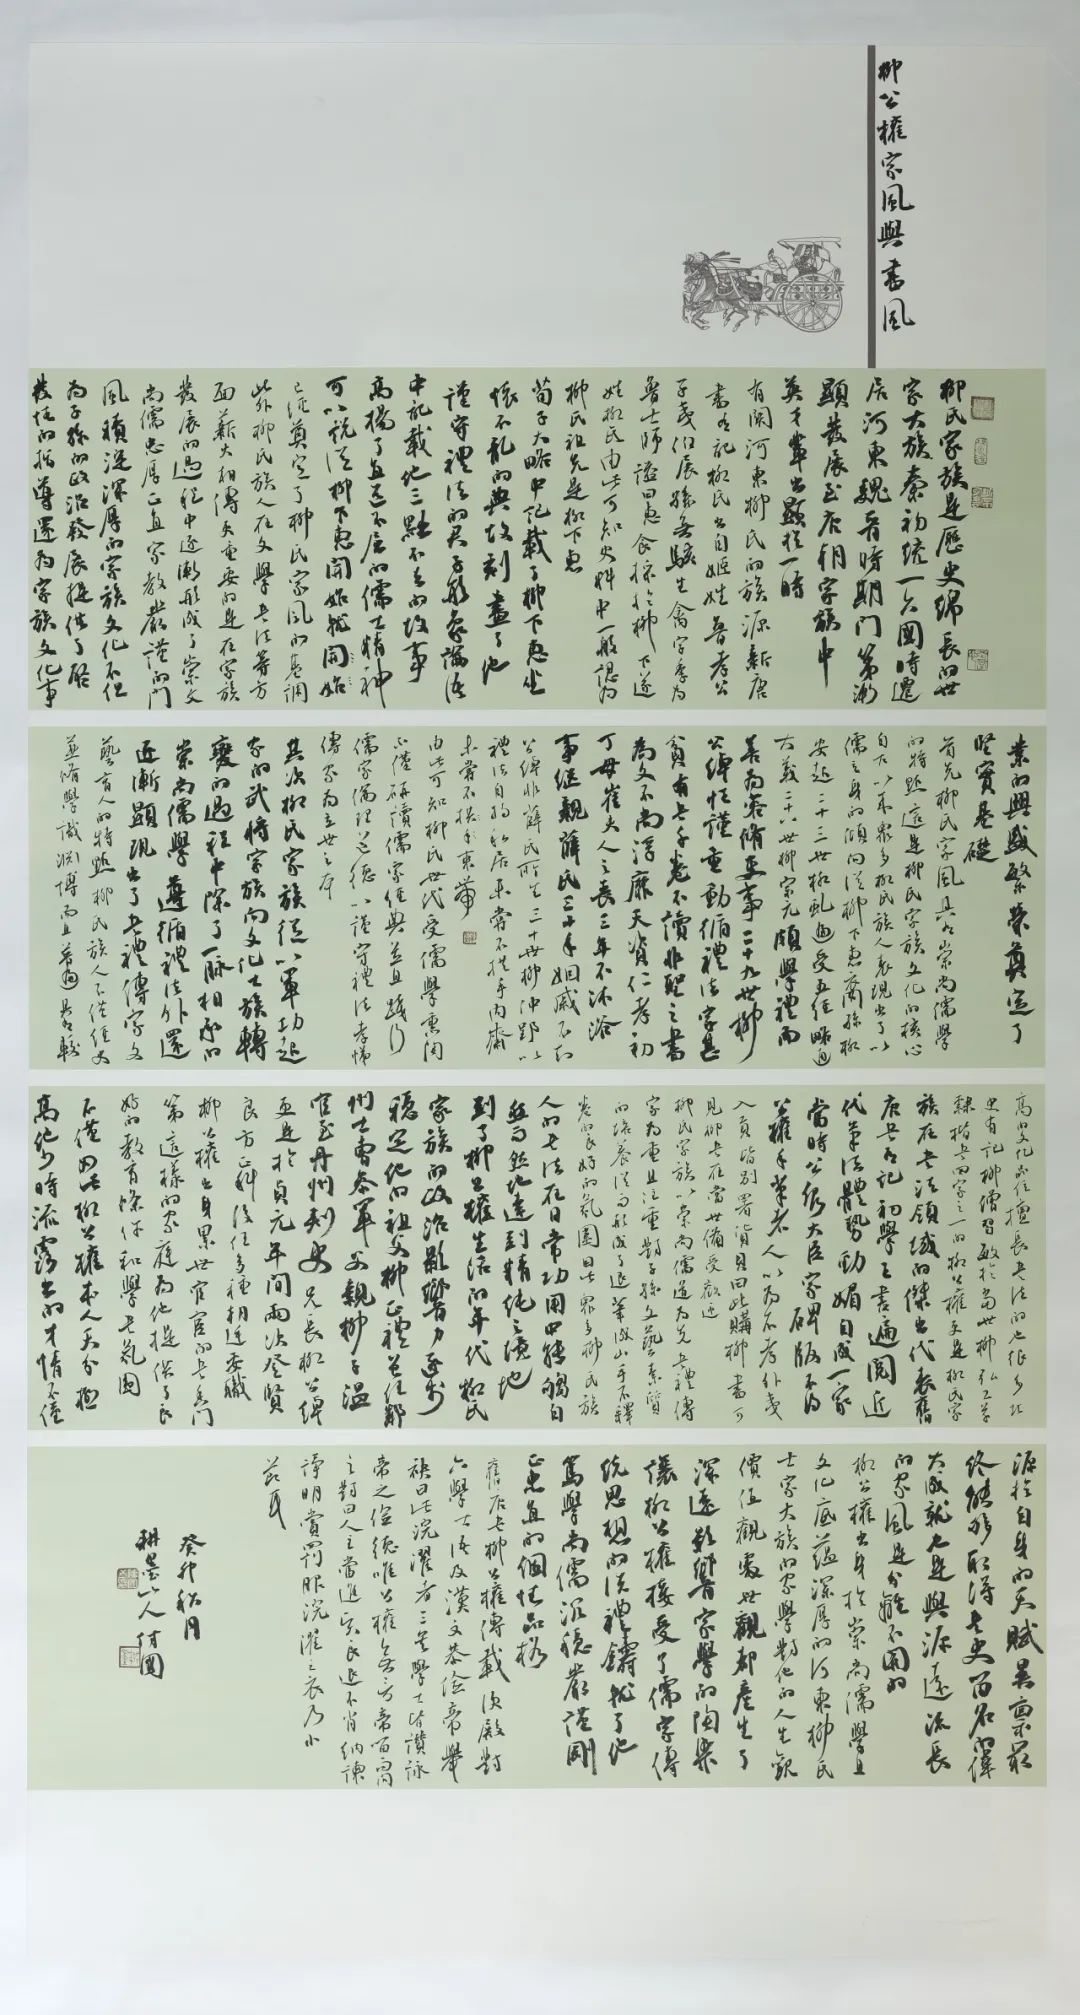 柳公權家風與書風
柳氏家族是歷史綿長的世
家大族秦初統一六國時遷
居河東魏晉時期門第漸
顯發展至唐朝家族中
英才輩出顯於一時
有關河東柳氏的族源新唐
書有記柳氏出自姬姓魯孝公
子夷伯展孫無駭生禽字季為
魯士師謚曰惠食採於柳下遂
姓柳氏由此可知史料中一般認為
柳氏祖先是柳下惠
荀子大略中記載了柳下惠坐
懷不亂的典故刻畫了他
謹守禮法的君子形象論語
中記載他三黜不去的故事
高揚了直道不屈的儒士精神
可以說從柳下惠開始就開始
已經奠定了柳氏家風的基調
此外柳氏族人在文學書法等方
面薪火相傳更重要的是在家族
發展的過程中逐漸形成了崇文
尚儒忠厚正直家教嚴謹的門
風積淀深厚的家族文化不但
為子孫的政治發展提供了啓
發性的指導還為家族文化事
業的興盛繁榮奠定了
堅實基礎
首先柳氏家風具有崇尚儒學
的特點這是柳氏家族文化的核心
自古以來眾多柳氏族人表現出了以
儒立身的傾向從柳下惠裔孫柳
安起二十三世柳虬遍受五經略通
大義二十六世柳宗元頗學禮而
善為容脩吏事二十九世柳
公綽性謹重動循禮法家甚
貧有書千卷不讀非聖之書
為文不尚浮靡天資仁孝初
丁母崔夫人之喪三年不沐浴
事繼親薛氏三十年姻戚不知
公綽非薛氏所生三十世柳仲郢以
禮法自持私居未嘗不拱手內齋
未嘗不束帶
由此可知柳氏世代受儒學熏陶
不僅研讀儒家經典並且踐行
儒家倫理道德以謹守禮法孝悌
傳家為立世之本
其次柳氏家族從以軍功起
家的武將家族向文化士族轉
變的過程中除了一脈相承的
崇尚儒學遵循禮法外還
逐漸顯現出了書禮傳家文
藝育人的特點柳氏族人不僅經史
並脩學識淵博而且普遍具有較
高的文化品位擅長書法的也很多北
史有記柳僧習敏於當世柳弘工草
隸楷書四家之一的柳公權更是柳氏家
族在書法領域的傑出代表舊
唐書有記初學王書遍閱近
代筆法體勢勁媚自成一家
當時公卿大臣家碑版不得
公權手筆者人以為不孝外夷
入貢皆別署貨貝曰此購柳書可
見柳書在當世備受歡迎
柳氏家族以崇尚儒道為先書禮傳
家為重且注重對子孫文藝素質
的培養從而形成了退筆成山手不釋
卷的良好的氛圍因此眾多柳氏族
人的書法在日常功用中能夠自
然而然地達到精純之境地
到了柳公權生活的年代柳氏
家族的政治影響力逐步
穩定他的祖父柳正禮曾任邠
州士曹參軍父親柳子溫
官至丹州刺史兄長柳公綽
更是於貞元年間兩次登賢
良方正科後任多種相近要職
柳公權出身累世官宦的書香門
第這樣的家庭為他提供了良
好的教育條件和學書氛圍
不僅因此柳公權本人天分極
高他少時流露出的才情不僅
源於自身的天賦異禀最
終能夠取得書史留名的偉
大成就也是與源遠流長
的家風是分離不開的
柳公權出身於崇尚儒學且
文化底蘊深厚的河東柳氏
士家大族的家學對他的人生觀
價值觀處世觀都產生了
深遠影響家學的陶染
讓柳公權接受了儒家傳
統思想的洗禮鑄就了他
篤學尚儒沉穩嚴謹剛
正忠直的個性品格
舊唐書柳公權傳載便殿對
六學士語及漢文恭儉帝舉
袂曰此浣濯者三矣學士皆讚詠
帝之儉德唯公權無言帝留而問
之對曰人主當進賢良退不肖納諫
諍明賞罰服浣濯之衣乃小
節耳
癸卯秋月
耕墨山人付圖